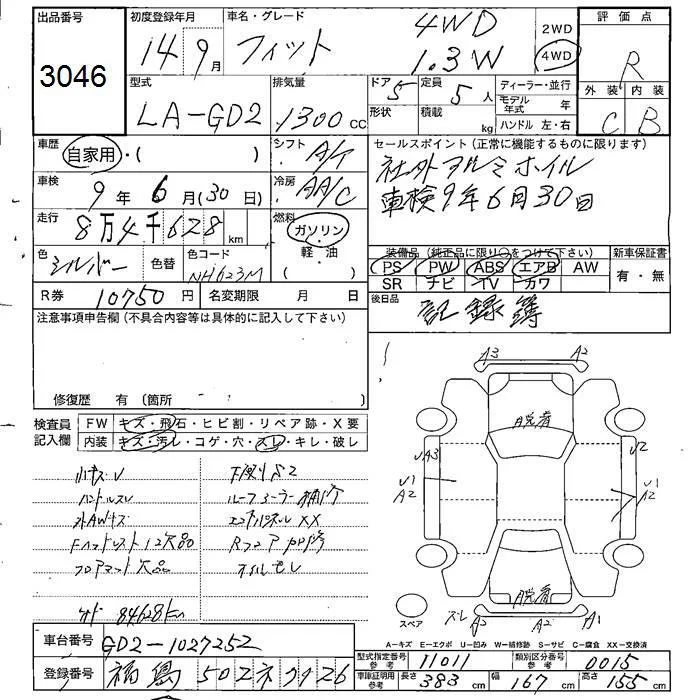 出品番号
3046
初度登録年月
14 9 月
車名・グレード
フィット
4WD
1.3W
2WD
4WD
評価点
R
外装 内装
C B
型式
LA-GD2
排気量
1300 CC
ドア 5
形状
定員 5 人
積載 kg
ディーラー・並行
モデル年式 年
ハンドル 左・右
車歴
自家用・( )
シフト
A/T
セールスポイント(正常に機能するものに限ります)
社外アルミホイル
車検9年6月30日
車検
9 年 6 月(30 日)
冷房
AA/C
走行
8万4千628 km
燃料
ガソリン
軽・油
色
シルバー
色替
色コード
NH623M
装備品(純正品に限り○をつけて下さい)
PS PW ABS エアB AW
SR ナビ TV カワ
新車保証書
有・無
R券 10750 円
名変期限 月 日
後日品
記録簿
注意事項申告欄(不具合内容等は具体的に記入して下さい)
修復歴 有(箇所
検査員記入欄
FW キズ・飛石・ヒビ割・リペア跡・X要
内装 キズ・汚レ・コゲ・穴・スレ・キレ・破レ
小キズU
ハンドルスレ
外AWキズ
フロアマット欠品
84628km
A3 A2
脱着
UA3
U1
A2
U2
U1
A2
脱着
スレ A2 A2 A1
スペア
A-キズ E-エクボ U-凹み W-補修跡 S-サビ C-腐食 XX-交換済
車台番号
GD2-1027252
登録番号
福島 502 ネ 9426
型式指定番号 参考
11011
類別区分番号 参考
0015
車庫証明用 参考
長さ 383 cm
幅 167 cm
高さ 155 cm